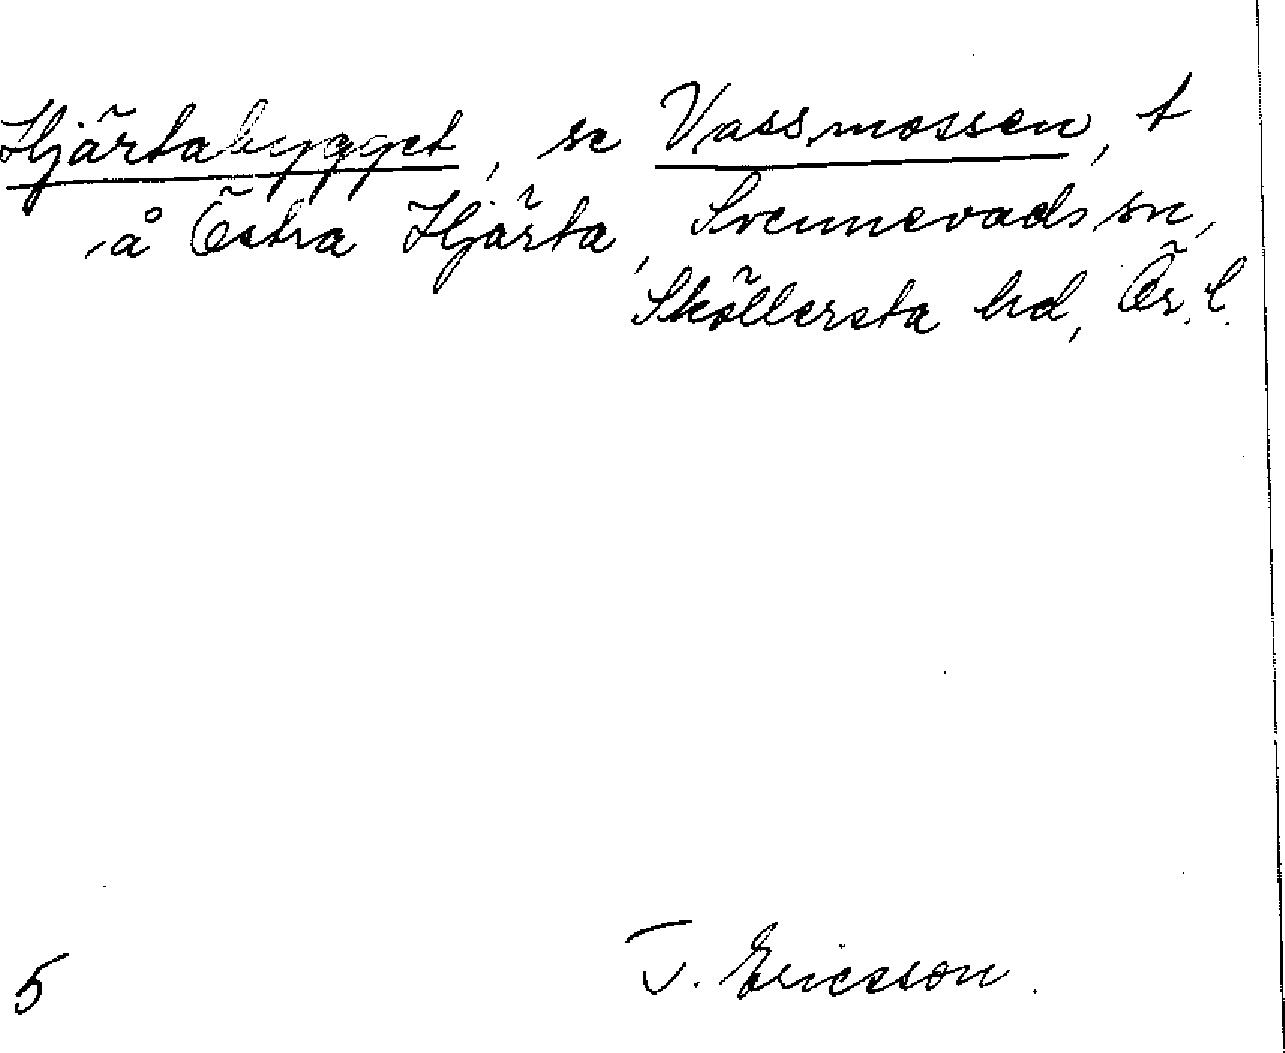 Hjärtabygget, se Vassmossen, t
å Östra Hjärta, Svennevads sn,
Sköllersta hd, Ör. l.
T. Ericsson.
5